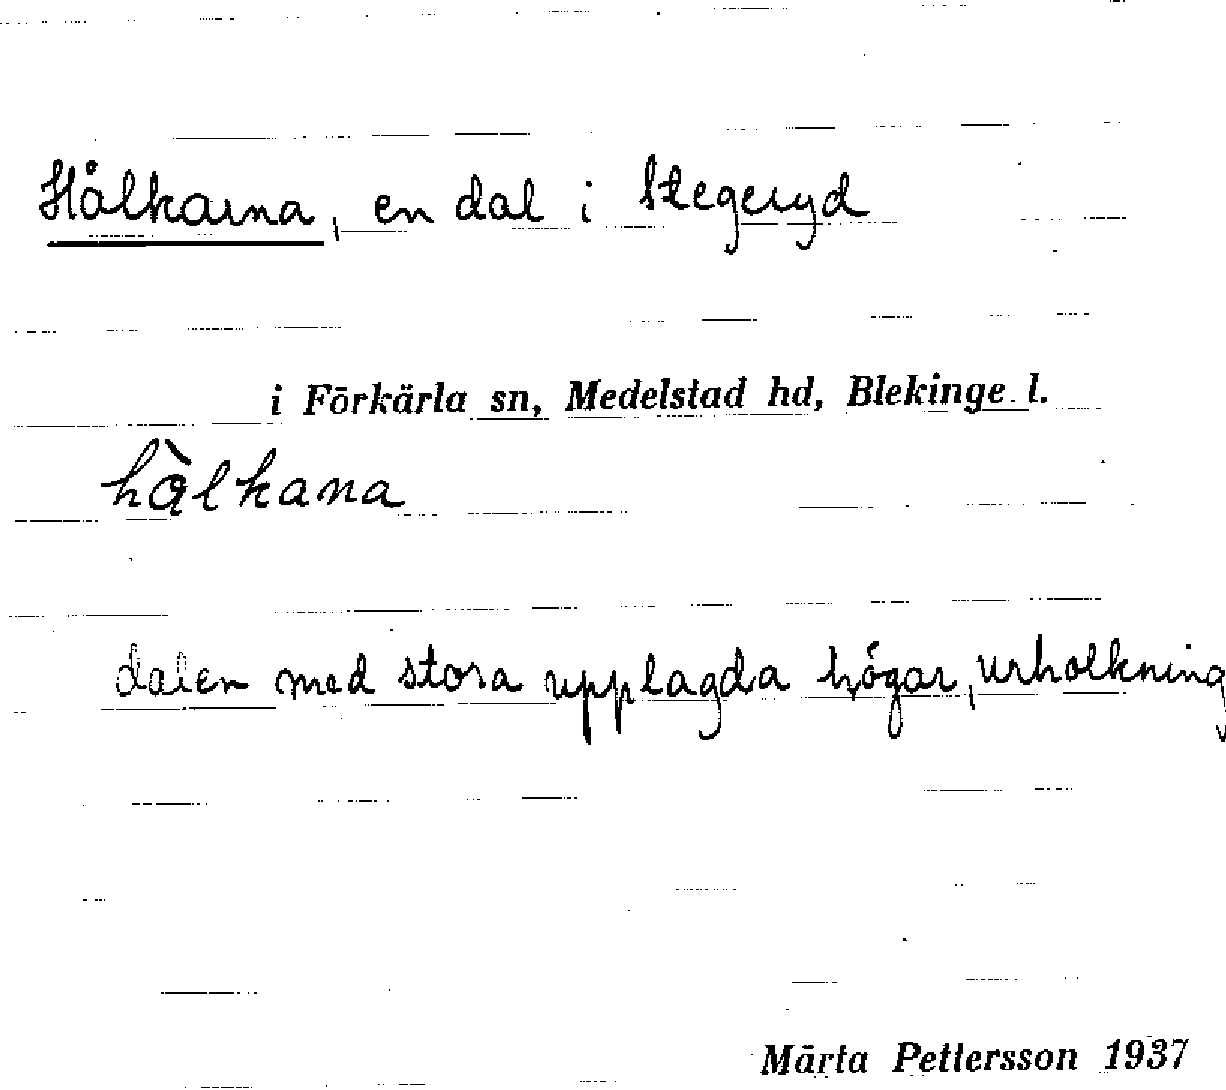 Hålkarna, en dal i Stegeryd
i Förkärla sn, Medelstad hd, Blekinge l.
hą̀lkana
dalen med stora upplagda högar, urholkning
Märta Pettersson 1937